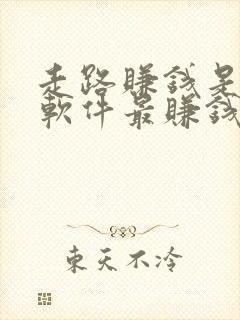 走路賺錢是
軟件最賺錢
東天不冷